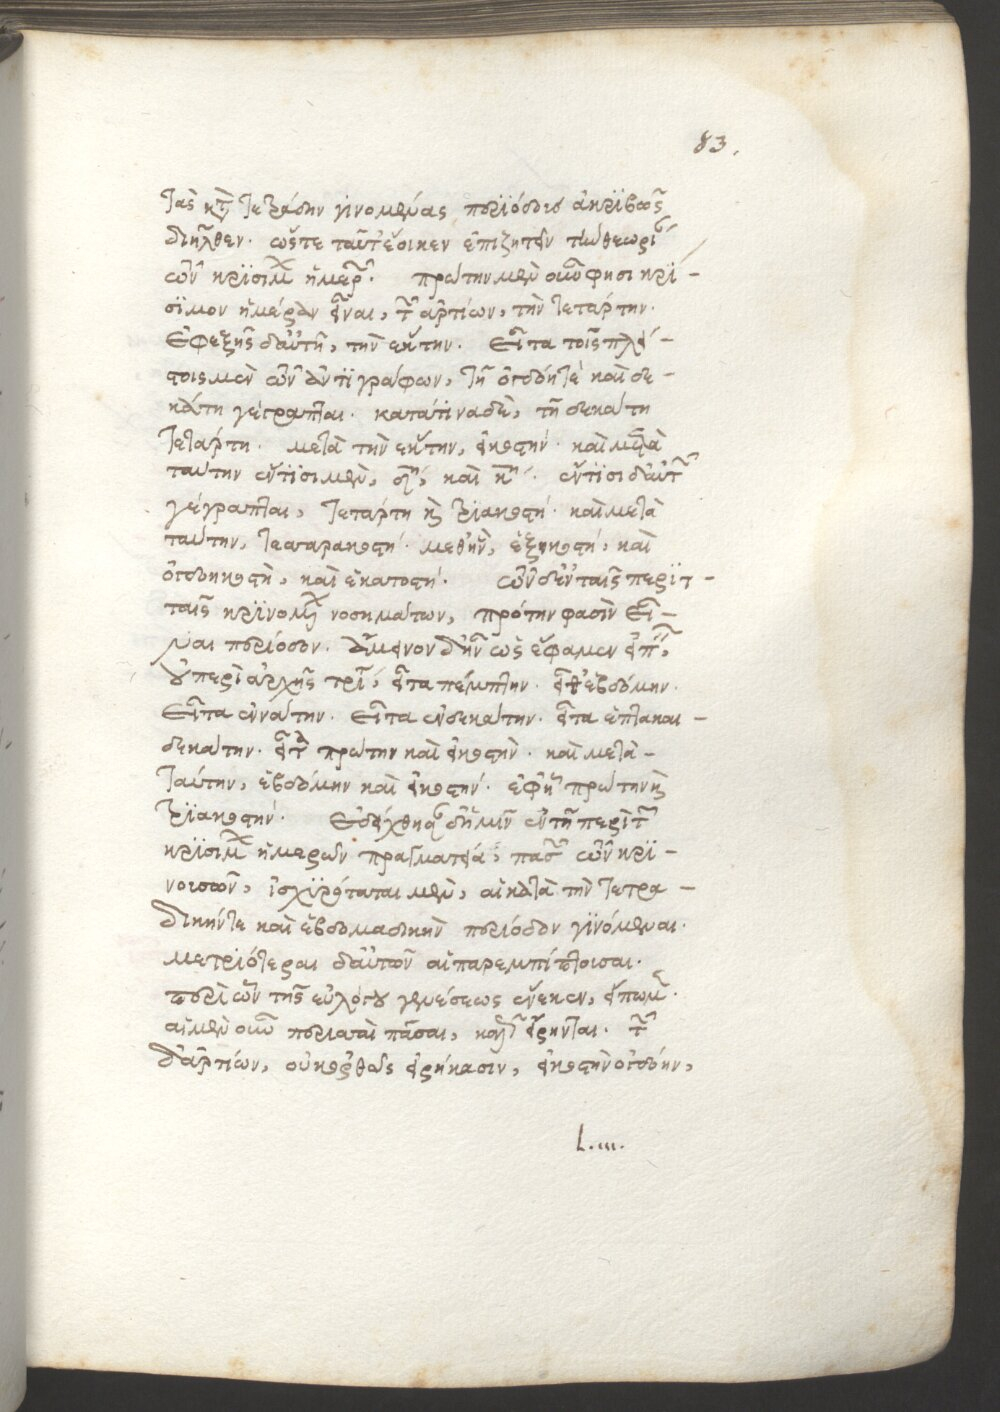 83.
τὰς κτ τετράδην γινομένας περϊόδους ἀκρϊβῶς
διῆλθεν. ὥστε ταῦτ ἔοικεν ἐπιζητεῖν τῶ θεωρ
τῶν κρϊσίμ ἡμερ. πρώτην μὲν οὖν φησι κρϊ-
σϊμον ἡμέραν εἶναι, τ ἀρτίων, τὴν τετάρτην.
Ἐφεξῆς δαὐτῆ, τὴν εκτην. Εἶτα τοῖς πλεί-
στοις μὲν τῶν ἀντϊγράφων, τῆ ὀγδόη τὲ καὶ δε-
κάτη γέγραπται. κατά τινα δὲ, τῆ δεκάτη
τετάρτη. μετὰ τὴν εκτην, εἰκοστήν. καὶ μετὰ
ταύτην ἐντϊσι μὲν, καὶ κη. ἐντϊσι δαὐτ
γέγραπται, τετάρτη κ τρϊακοστή. καὶ μετὰ
ταύτην, τεσσαρακοστή. μεθ ἣν, ἑξηκοστή, καὶ
ὀγδοηκοστὴ, καὶ ἑκατοστή. τῶν δ ἐν ταῖς περϊτ-
ταῖς κρϊνομ νοσημάτων, πρότην φασὶν εἶ-
ναι περίοδον. ὡς ἔφαμεν ἐπ,
ὑπερὶ ἀρχῆς τρί, εἶτα πέμπτην. εἶθ ἑβδόμην.
Εἶτα ἐνάτην. Εἶτα ἑνδεκάτην. εἶτα ἑπτακαι-
δεκάτην. πρώτην καὶ εἰκοστὴν. καὶ μετὰ-
ταύτην, ἑβδόμην καὶ εἰκοστήν. ἐφ ἧ πρώτην κ
τρϊακοστήν. Ἐδείχθησ δ ἡμῖν ἐν τῆ περὶ τ
κρϊσίμ ἡμερῶν πραγματεία, πασ τῶν κρϊ-
νουσῶν, ἰσχϋρόταται μὲν, αἱ κατὰ τὴν τετρα-
δικήν τε καὶ ἑβδομαδικὴν περίοδον γϊνόμεναι.
μετριότεραι δαὐτῶν αἱ παρεμπίπτουσαι.
περὶ ὧν τῆς εὐλόγου γενέσεως ἕνεκεν, εἴπωμ.
αἱ μὲν οὖν περιτταὶ πᾶσαι, καλ εἴρηνται. τ
δ ἀρτίων, οὐκ ὀρθῶς εἰρήκασιν, εἰκοστὴν ὀγδόην,
L. iii.